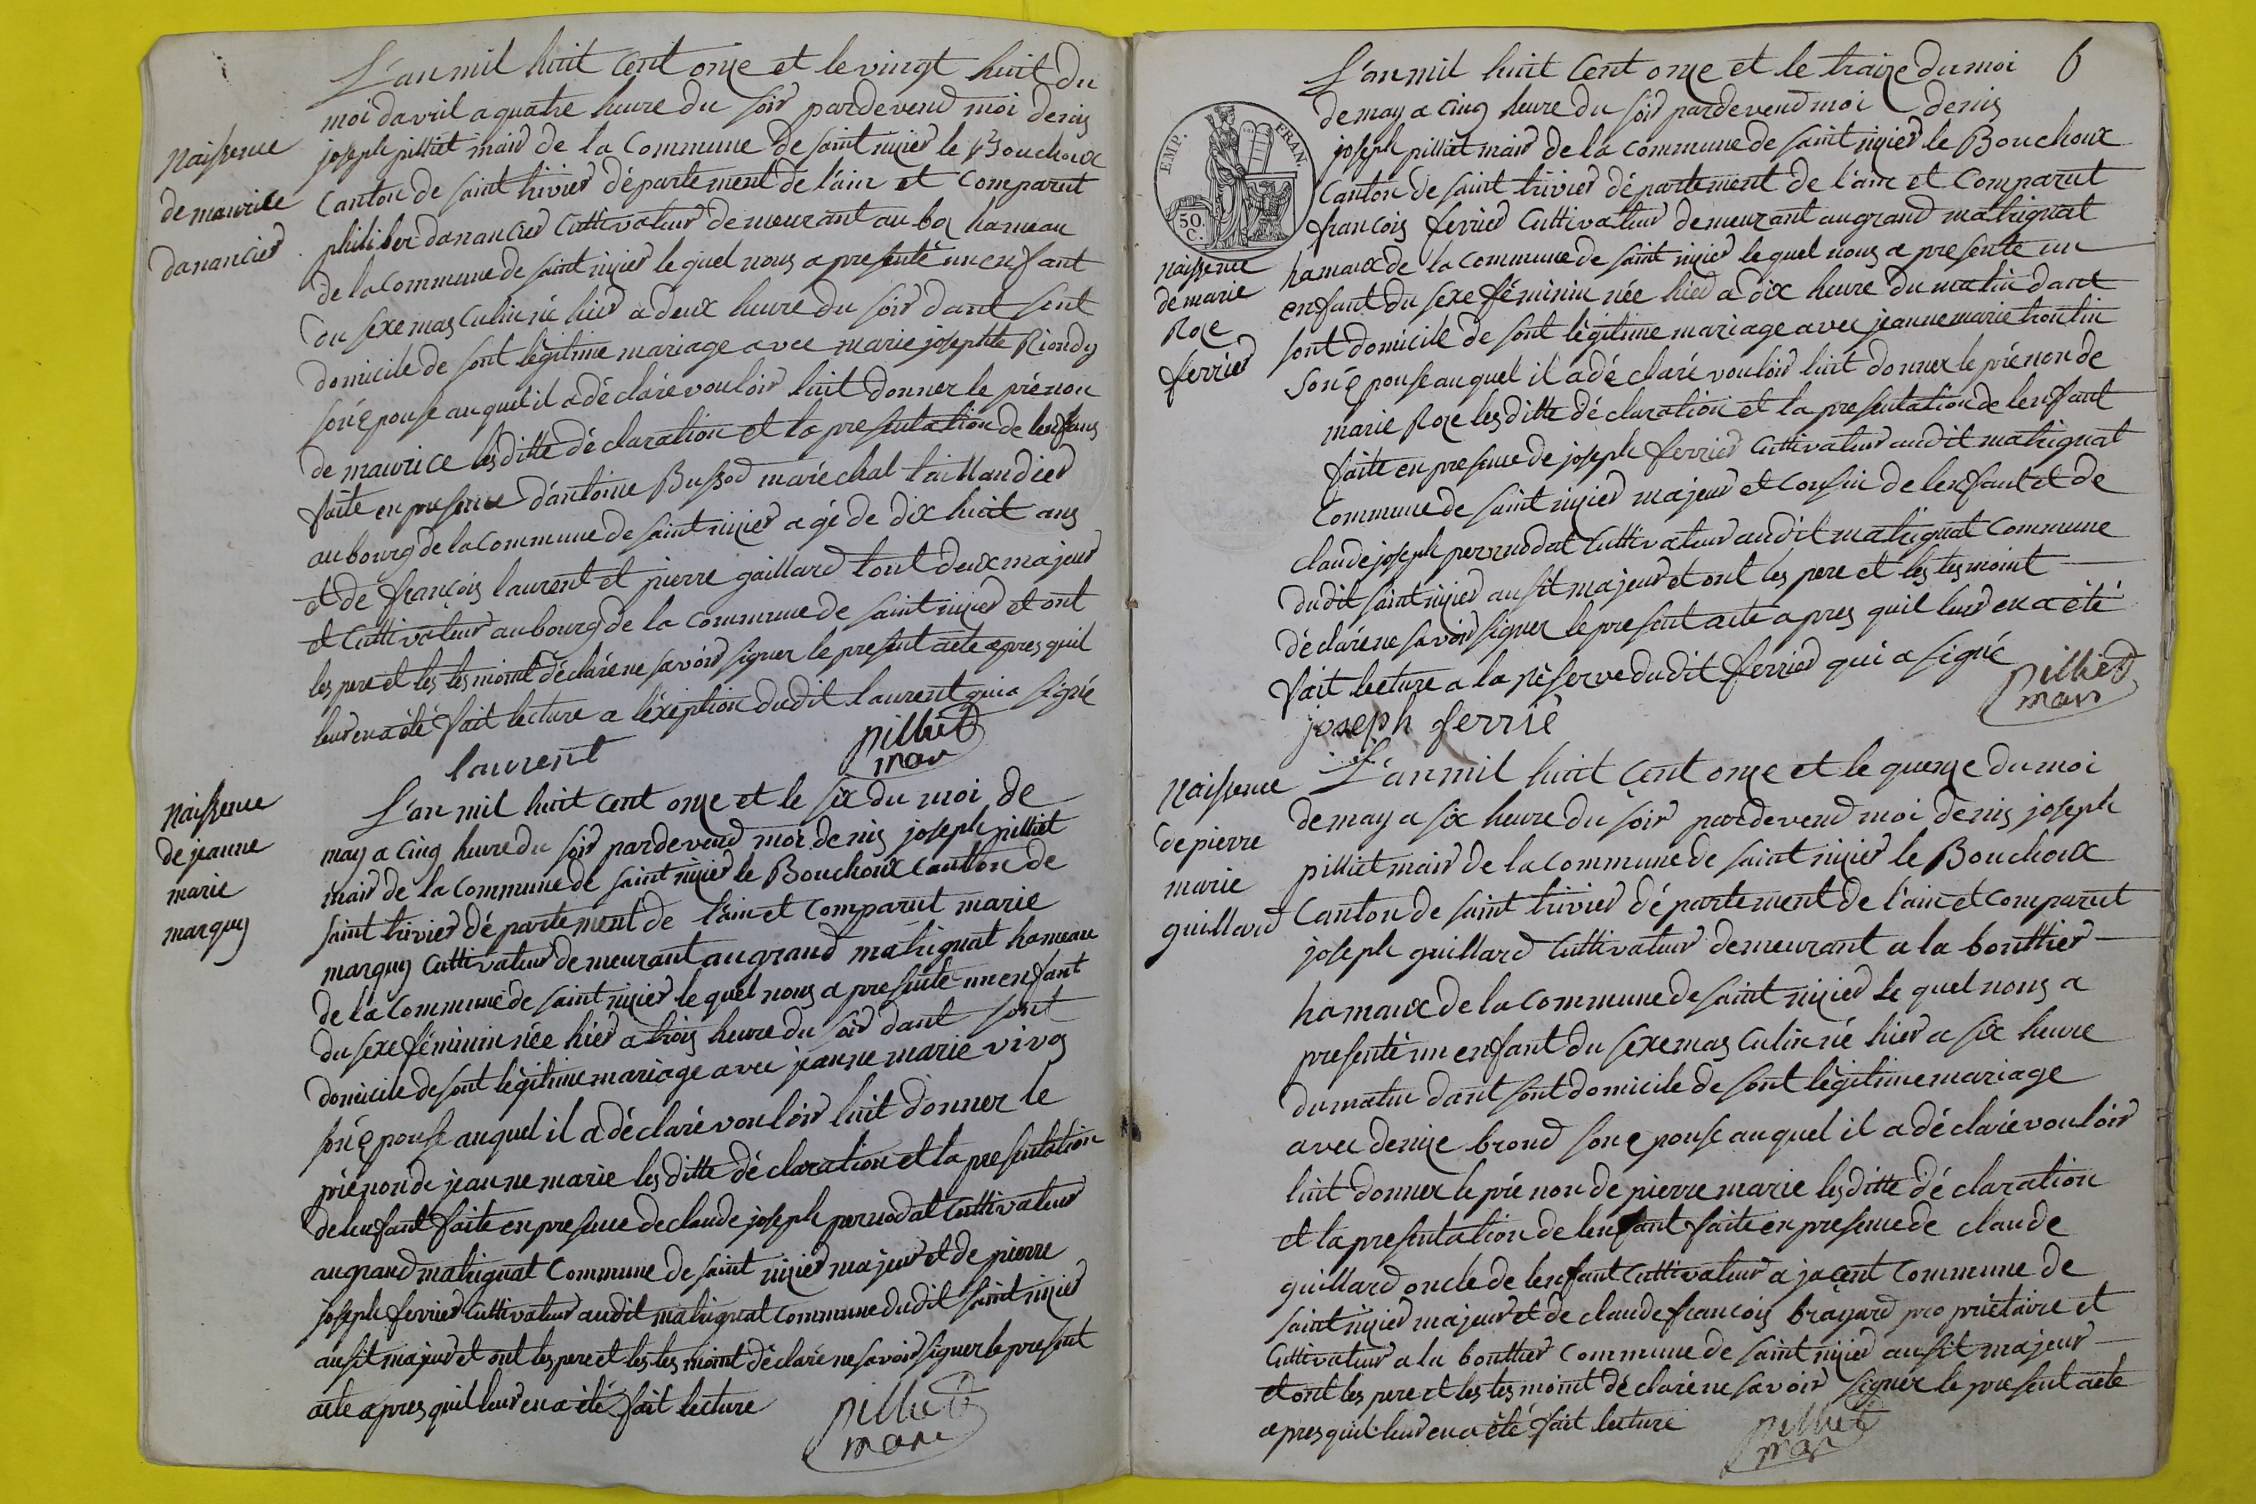 L'an mil huit cent onze et le vingt huit du
moi davril a quatre heure du soir pardevend moi denis
joseph pilliet mair de la Commune de saint nizier le Bouchoux
Canton de saint trivier département de l'ain et Comparut
philiber danancier Cultivateur demeurant au boz hameau
de la Commune de saint nizier le quel nous a presenté un enfant
du sexe mas Culin né hier a deux heure du soir dant sont
domicile de sont légitime mariage avec marie josephte Riondy
son épouse auquel il a déclaré vouloir luit donner le prénon
de maurice lesditte déclaration et la presentation de lenfans
faite en presence d'antoine Bussod maréchal taillandier
au bourg de la Commune de saint nizier agé de dix huit ans
et de françois laurent et pierre gaillard tout deux majeur
et Cultivateur au bourg de la Commune de saint nizier et ont
les pere et les tesmoint déclaré ne savoir signer le present acte apres quil
leur en a été fait lecture a léxéption dudit laurent qui a signé
laurent
pilliet
mair
Naissence
de maurice
danancier
Naissence
de jeanne
marie
marquy
L'an mil huit cent onze et le six du moi de
may a Cinq heure du soir pardevend moi denis joseph pilliet
mair de la Commune de saint nizier le Bouchoux Canton de
saint trivier département de l'ain et Comparut marie
marquy Cultivateur demeurant au grand matrignat hameau
de la Commune de saint nizier le quel nous a presenté un enfant
du sexe féminin née hier a trois heure du soir dant sont
domicile de sont légitime mariage avec jeanne marie vivos
son épouse auquel il a déclaré vouloir luit donner le
prénon de jeanne marie lesditte déclaration et la presentation
de lenfant faite en presence de claude joseph pernodat Cultivateur
au grand matrignat Commune de saint nizier majeur et de pierre
joseph ferrier Cultivateur audit matrignat Commune dudit saint nizier
ausit majeur et ont les pere et les tesmoint déclaré ne savoir signer le present
acte apres quil leur en a été fait lecture
pilliet
maire
6
L'an mil huit Cent onze et le traize du moi
de may a Cinq heure du soir pardevend moi denis
joseph pilliet mair de la Commune de saint nizier le Bouchoux
Canton de saint trivier département de l'ain et Comparut
françois ferrier Cultivateur demeurant au grand matrignat
hamaux de la Commune de saint nizier le quel nous a presenté un
enfant du sexe féminin née hier a dix heure du matin dant
sont domicile de sont légitime mariage avec jeanne marie tronlin
son épouse auquel il a déclaré vouloir luit donner le prénon de
marie Roze lesditte déclaration et la presentation de lenfant
faite en presence de joseph ferrier Cultivateur audit matrignat
Commune de saint nizier majeur et Cousin de lenfant et de
claude joseph pernodat Cultivateur audit matrignat Commune
dudit saint nizier ausit majeur et ont les pere et les tesmoint
déclaré ne savoir signer le present acte apres quil leur en a été
fait lecture a la réserve dudit ferrier qui a signé
joseph ferrié
pilliet
mair
EMP. FRAN.
50
C.
Naissence
de marie
Roze
ferrier
Naissence
de pierre
marie
guillard
L'an mil huit Cent onze et le quenze du moi
de may a six heure du soir pardevend moi denis joseph
pilliet mair de la Commune de saint nizier le Bouchoux
Canton de saint trivier département de l'ain et Comparut
joseph guillard Cultivateur demeurant a la bouttier
hamaux de la Commune de saint nizier le quel nous a
presenté un enfant du sexe mas Culin né hier a six heure
du matin dant sont domicile de sont légitime mariage
avec denize brond son épouse auquel il a déclaré vouloir
luit donner le pré non de pierre marie lesditte déclaration
et la presentation de lenfant faite en presence de claude
guillard oncle de lenfant Cultivateur a jacent Commune de
saint nizier majeur et de claude françois brayard propriétaire et
Cultivateur a la bouttier Commune de saint nizier ausit majeur
et ont les pere et les tesmoint déclaré ne savoir signer le present acte
apres quil leur en a été fait lecture
pilliet
mair